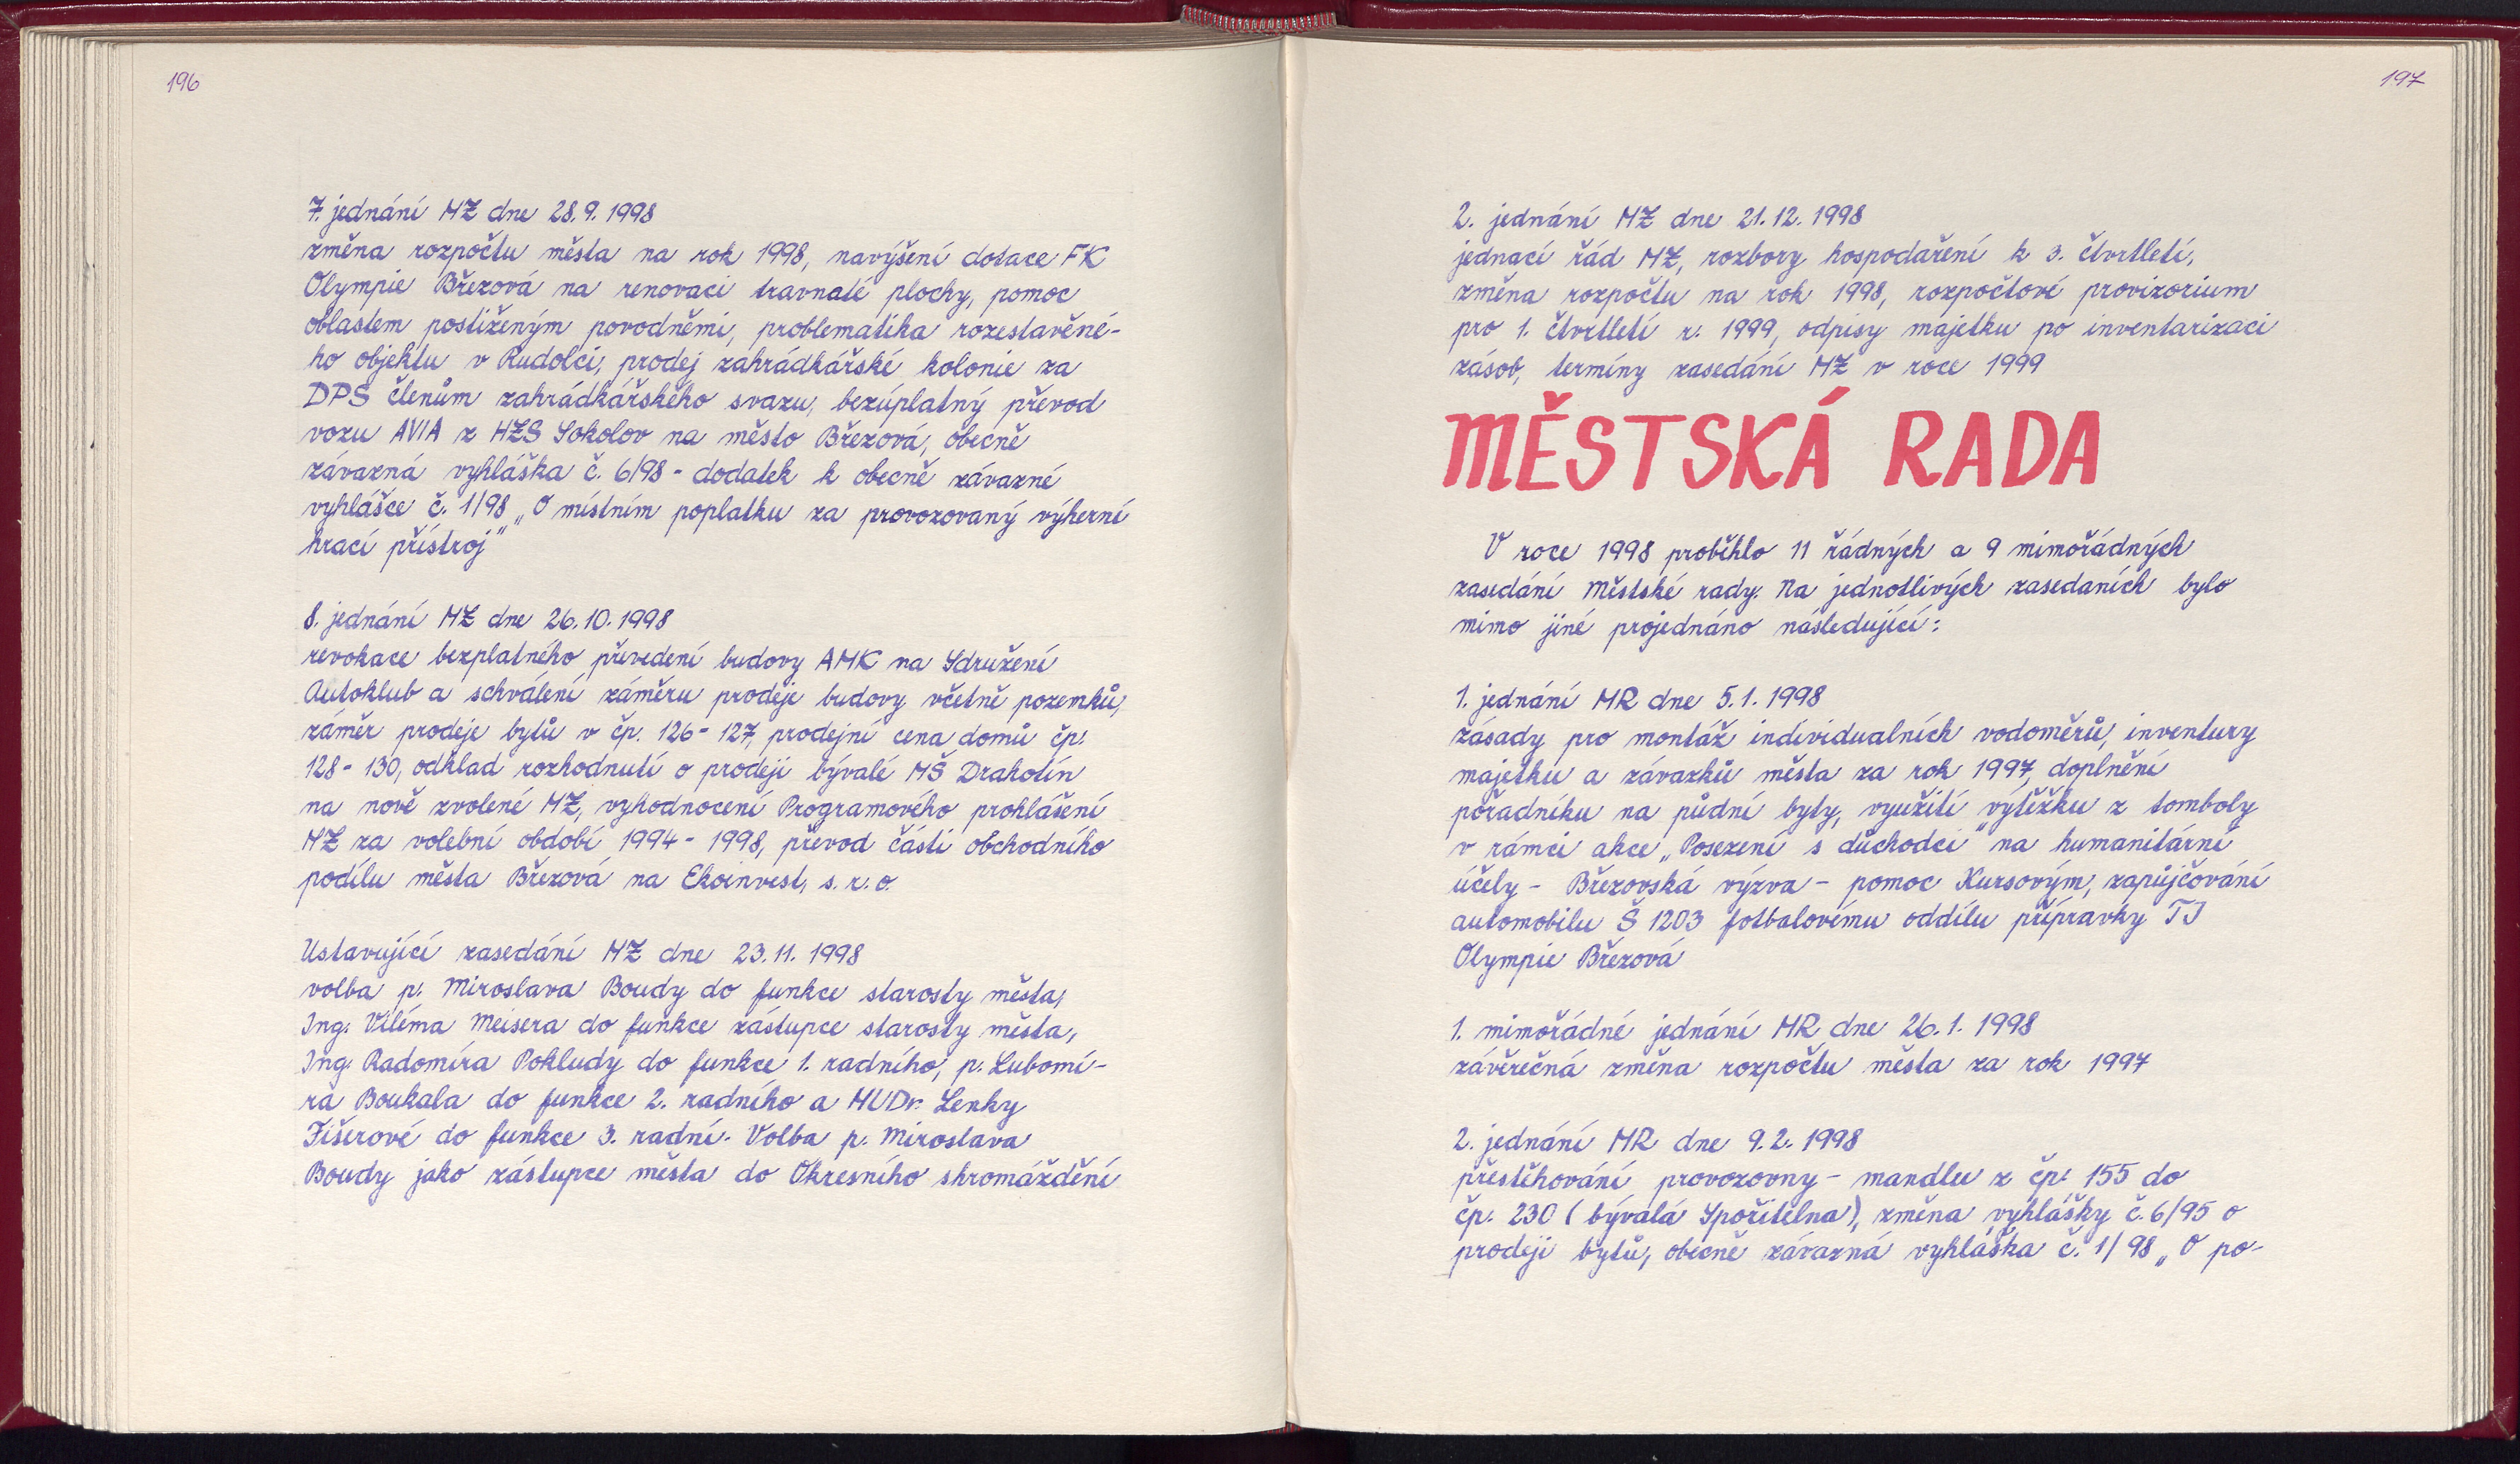 196
7. jednání MZ dne 28.9.1998
změna rozpočtu města na rok 1998, navýšení dotace FK
Olympie Březová na renovaci travnaté plochy, pomoc
oblastem postiženým povodněmi, problematika rozestavěné-
ho objektu v Rudolci, prodej zahrádkářské kolonie za
DPS členům zahrádkářského svazu, bezúplatný převod
vozu AVIA z HZS Sokolov na město Březová, obecně
závazná vyhláška č. 6/98 - dodatek k obecně závazné
vyhlášce č. 1/98 „O místním poplatku za provozovaný výherní
hrací přístroj"
8. jednání MZ dne 26.10.1998
revokace bezplatného převedení budovy AMK na Sdružení
Autoklub a schválení záměru prodeje budovy včetně pozemků,
záměr prodeje bytů v čp. 126 - 127, prodejní cena domů čp.
128 - 130, odklad rozhodnutí o prodeji bývalé MŠ Drahotín
na nově zvolené MZ, vyhodnocení Programového prohlášení
MZ za volební období 1994 - 1998, převod části obchodního
podílu města Březová na Ekoinvest, s.r.o.
Ustavující zasedání MZ dne 23.11.1998
volba p. Miroslava Boudy do funkce starosty města,
Ing. Viléma Meisera do funkce zástupce starosty města,
Ing. Radomíra Pokludy do funkce 1. radního, p. Lubomí-
ra Boukala do funkce 2. radního a MUDr. Lenky
Fišerové do funkce 3. radní. Volba p. Miroslava
Boudy jako zástupce města do Okresního shromáždění
197
2. jednání MZ dne 21.12.1998
jednací řád MZ, rozbory hospodaření k 3. čtvrtletí,
změna rozpočtu na rok 1998, rozpočtové provizorium
pro 1. čtvrtletí r. 1999, odpisy majetku po inventarizaci
zásob, termíny zasedání MZ v roce 1999
MĚSTSKÁ RADA
V roce 1998 proběhlo 11 řádných a 9 mimořádných
zasedání Městské rady. Na jednotlivých zasedaních bylo
mimo jiné projednáno následující:
1. jednání MR dne 5.1.1998
zásady pro montáž individualních vodoměrů, inventury
majetku a závazků města za rok 1997, doplnění
pořadníku na půdní byty, využití výtěžku z tomboly
v rámci akce „Posezení s důchodci" na humanitární
účely - Březovská výzva - pomoc Kursovým, zapůjčování
automobilu Š 1203 fotbalovému oddílu přípravky TJ
Olympie Březová
1. mimořádné jednání MR dne 26.1.1998
závěrečná změna rozpočtu města za rok 1997
2. jednání MR dne 9.2.1998
přestěhování provozovny - mandlu z čp. 155 do
čp. 230 (bývalá Spořitelna), změna vyhlášky č. 6/95 o
prodeji bytů, obecně závazná vyhláška č. 1/98 „O po-